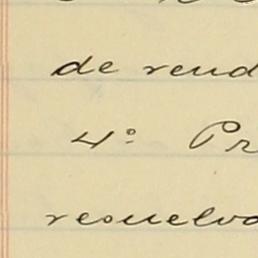 de rend
4º Pr
resuelvo